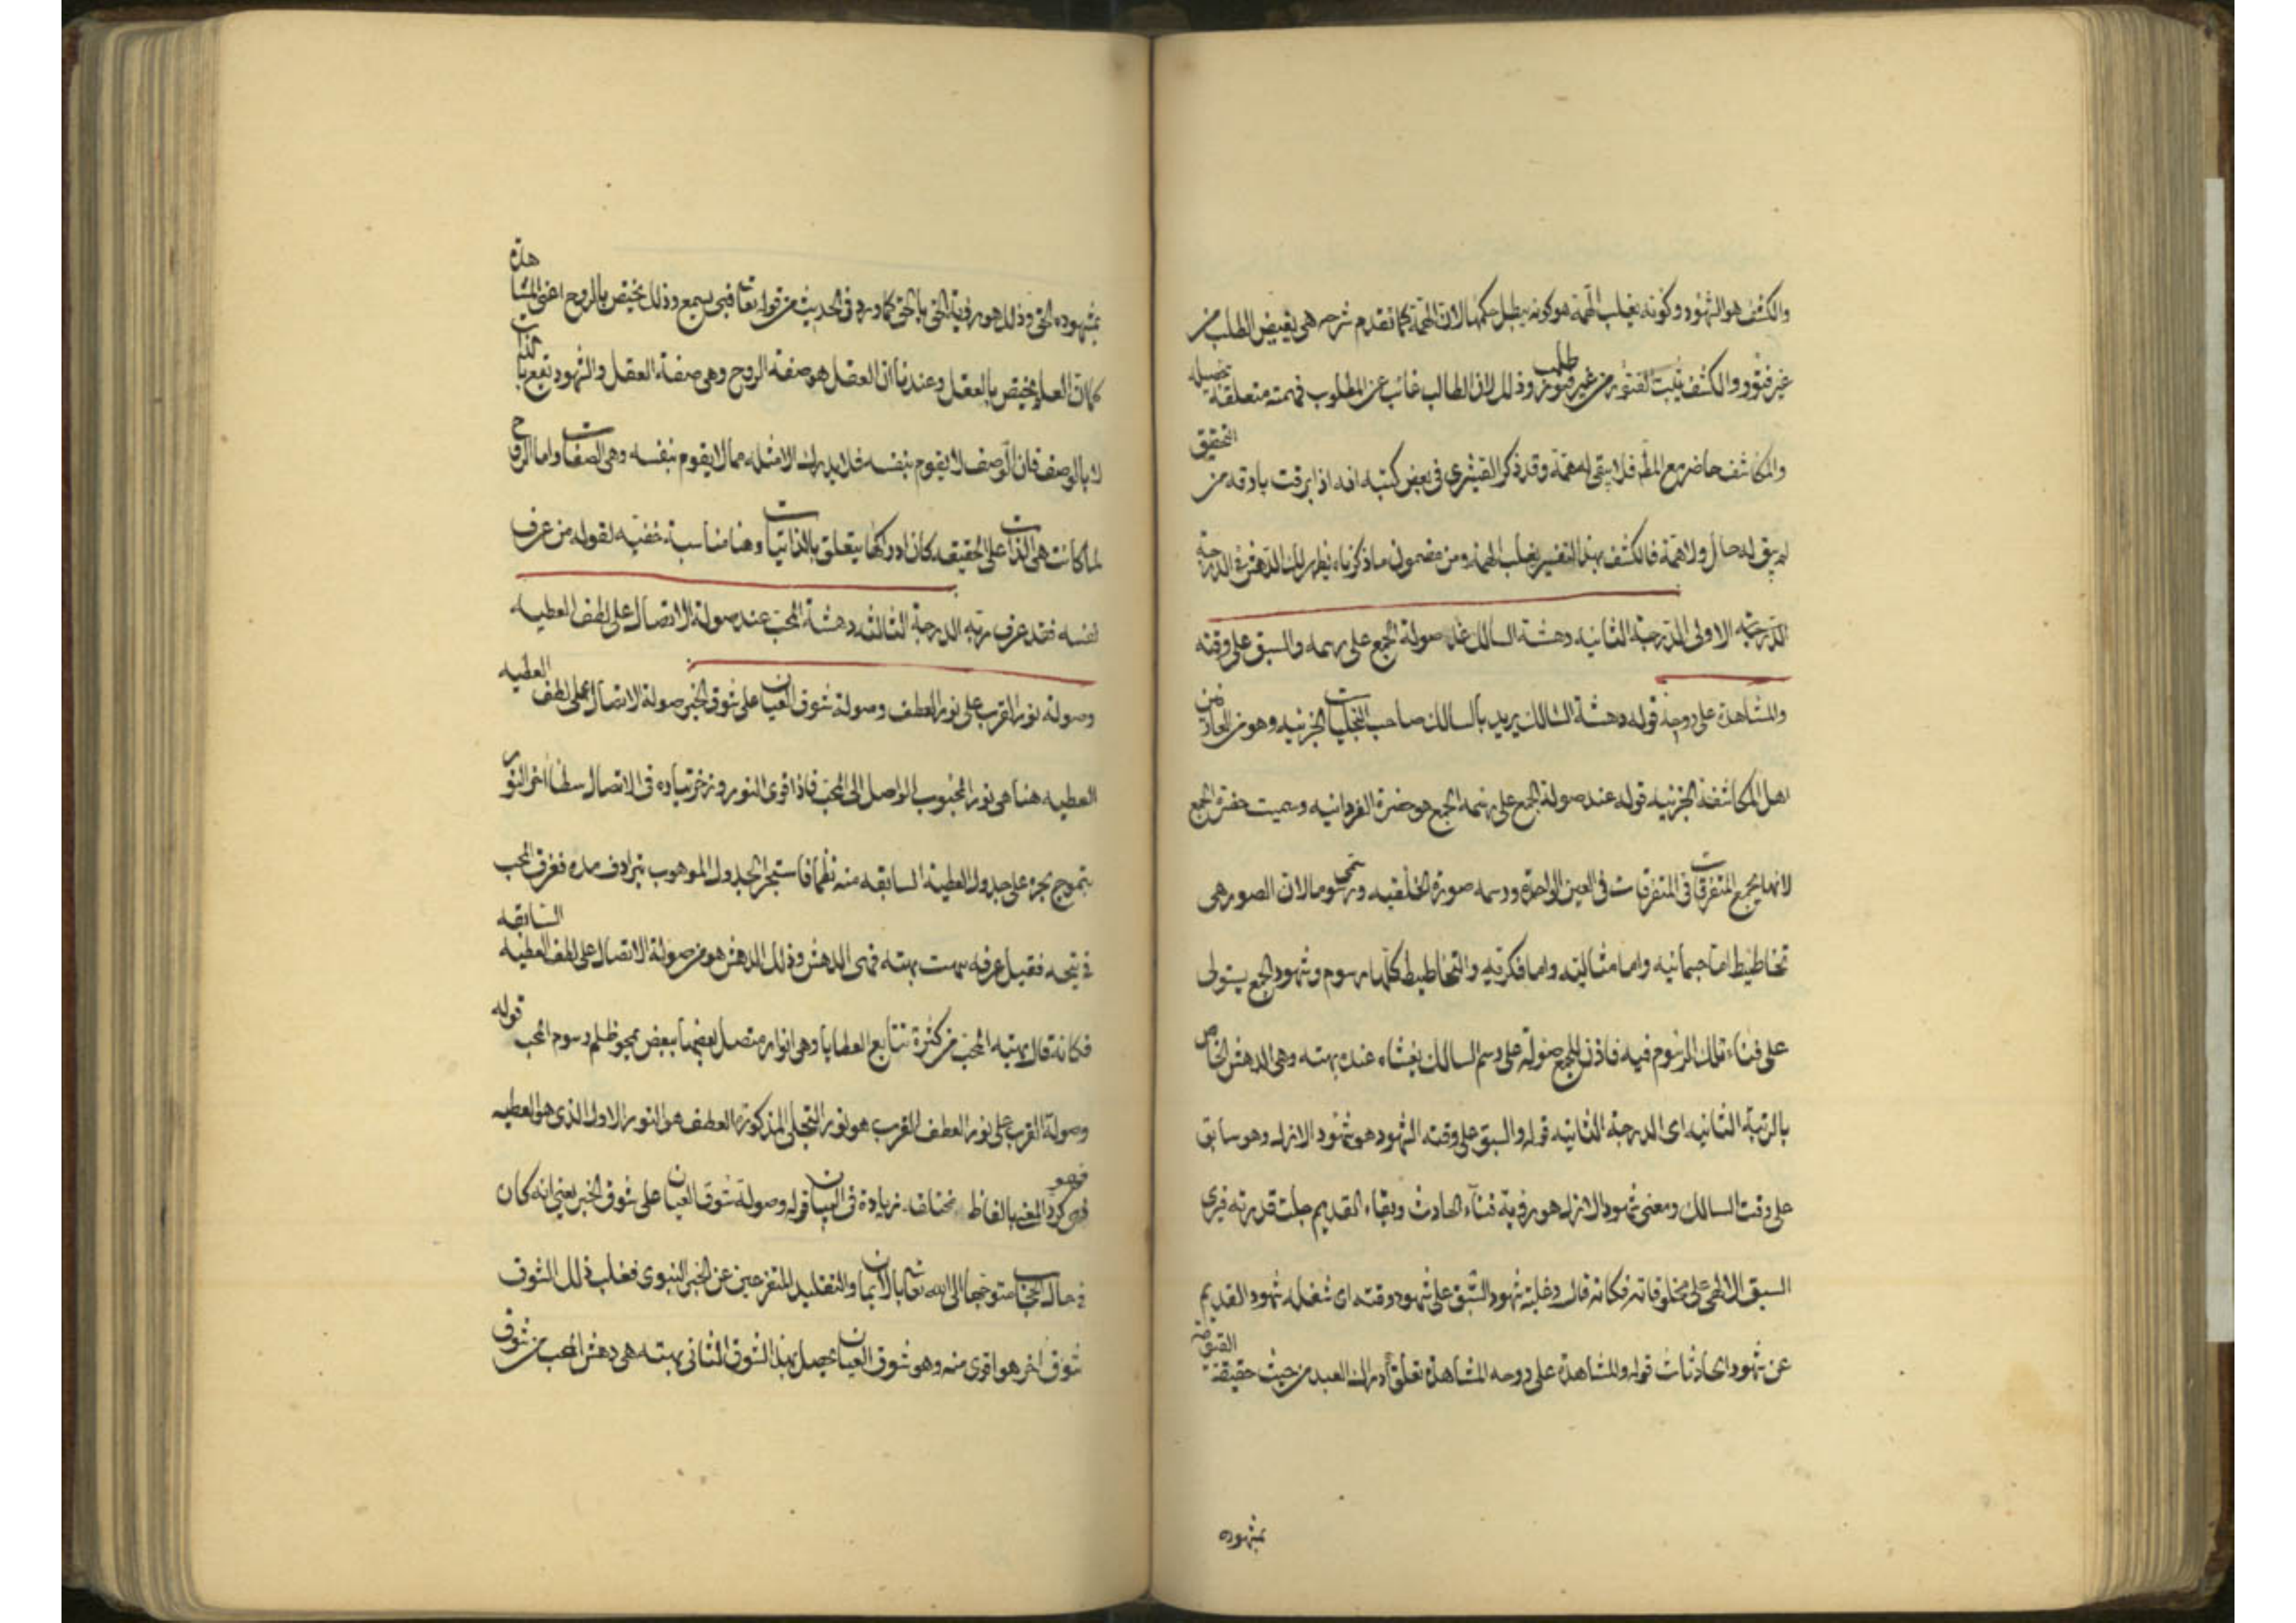 والكشف هو الشهود وكونه يغلب الهمة هو كونه يبطل حكمها لان الهمة كما تقدم شرحه هي يقيض الطلب من
غير فتور والكشف يثبت الفتور من غير فتور طلب وذلك لان الطالب غائب عن المطلوب فهمته متعلقة بتحصيله
والمكاشف حاضر مع المط فلا يبقى له همة وقد ذكر القشيري في بعض كتبه انه اذا برقت بارقه من التحقيق
لم يبق له حال ولا همة فالكشف بهذا التفسير يغلب الهمة ومن مضمون ما ذكرناه يظهر لك الدهش في الدرجة
الدرجة الاولى الدرجة الثانيه دهشة السالك عند صولة الجمع على رسمه والسبق على وقته
والمشاهدة على روحه قوله دهشة السالك يريد بالسالك صاحب التجليات الجزئيه وهو من
اهل المكاشفة الجزئيه قوله عند صولة الجمع على رسمه الجمع هو حضرة الفردانيه وسميت حضرة الجمع
لانها يجمع المتفرقات في المتفرقات في العين الواحدة ورسمه صورة الخلقيه وتسمى رسوما لان الصور هي
تخاطيط اما جسمانيه واما مثاليه واما فكريه والتخاطيط كلها رسوم وشهود الجمع يستولى
على فناء تلك الرسوم فيه فاذن للجمع صولة على رسم السالك يغشاه عنده بهته وهي الدهش الخاص
بالرتبة الثانيه اى الدرجة الثانيه قوله والسبق على وقته الشهود هو شهود الازل وهو سابق
على وقت السالك ومعنى شهود الازل هو رؤية فناء الحادث وبقاء القديم جلت قدرته فيرى
السبق الالهي على مخلوقاته فكانه قال وغلبة شهود السبق على شهود وقته اى شغله شهود القديم
عن شهود الحادثات قوله والمشاهدة على روحه المشاهدة تعلق ادراك العبد من حيث حقيقته
بمشهوده
بمشهوده الحق وذلك هو رؤية الحق بالحق كما ورد في الحديث من قوله تعا فبي يسمع وذلك يختص بالروح اعنى هذه
كما ان العلم يختص بالعقل وعندنا ان العقل هو صفة الروح وهي صفة العقل والشهود تقع بالذات
لا بالوصف فان الوصف لا يقوم بنفسه فلا يدرك الا مثله مما لا يقوم بنفسه وهي الصفات واما الروح
لما كانت هي الذات على الحقيقه كان ادراكها يتعلق بالذاتيات وهنا مناسبة خفيه لقوله من عرف
نفسه فقد عرف ربه الدرجة الثالثه دهشة المحب عند صولة الاتصال على لطف العطيه
وصولة نور القرب على نور العطف وصولة شوق العيان على شوق الخبر صولة الاتصال على لطف العطيه
العطيه هنا هي نور المحبوب الواصل الى المحب فاذا قوى النور وزخر تياره في الاتصال سطا اخر النور
بتموج بحره على جدول العطية السابقه منه فاستجر الجدول الموهوب بترادف مده فغرق المحب
في لجه فقيل غرقه بهت بهته فهى الدهش وذلك الدهش هو من صولة الاتصال على لطف العطيه السابقه
فكانه قال بهته المحب من كثرة تتابع العطايا وهى انوار متصل بعضها ببعض يمحو ظلم رسوم المحب قوله
وصولة القرب على نور العطف القرب هو نور التجلى المذكور والعطف هو النور الاول الذى هو العطيه
المعنى بالفاظ مختلف زيادة في البيان قوله وصولة شوق العيان على شوق الخبر يعني انه كان
في حال الحجاب متوجها الى الله تعا بالايمان والتقليد المتفرعين عن الخبر النبوى فغلب ذلك الشوق
شوق اخر هو اقوى منه وهو شوق العيان يحصل بهذا الشوق الثاني بهته هى دهش المحب من شوق